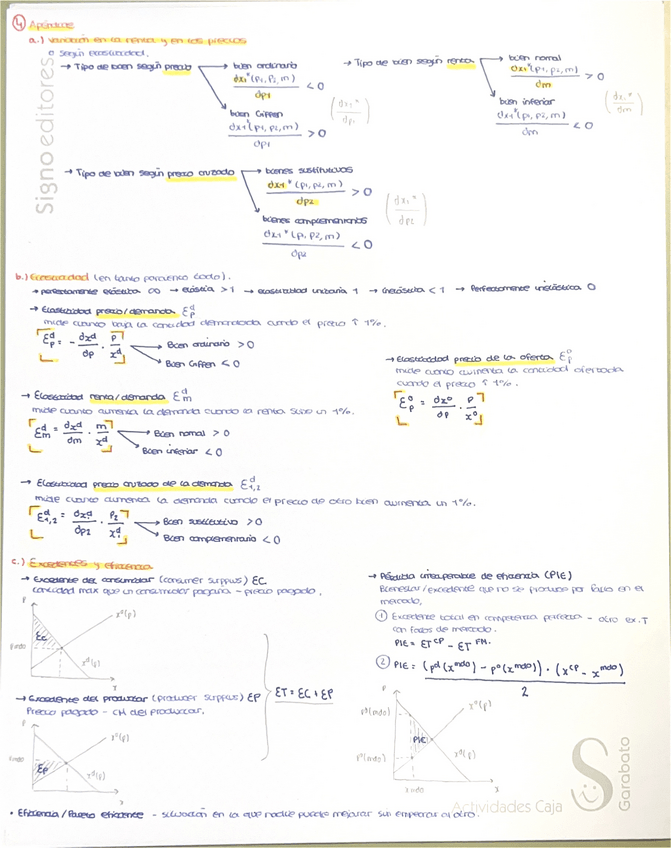 4 Apéndice
a.) variación en la renta y en los precios
o según elasticidad.
→ Tipo de bien según precio → bien ordinario
dx1*(p1, p2, m) / dp1 < 0
(dx1* / dp1)
→ bien Giffen
dx1*(p1, p2, m) / dp1 > 0
→ Tipo de bien según renta → bien normal
dx1*(p1, p2, m) / dm > 0
(dx1* / dm)
→ bien inferior
dx1*(p1, p2, m) / dm < 0
→ Tipo de bien según precio cruzado → bienes sustitutivos
dx1*(p1, p2, m) / dp2 > 0
(dx1* / dp2)
→ bienes complementarios
dx1*(p1, p2, m) / dp2 < 0
b.) Elasticidad (en tanto porciento todo).
→ perfectamente elástica ∞ → elástica > 1 → elasticidad unitaria 1 → inelástica < 1 → Perfectamente inelástica 0
→ Elasticidad precio/demanda Ɛ^d_p
mide cuanto baja la cantidad demandada cuando el precio ↑ 1%.
Ɛ^d_p = - dx^d / dp · p / x^d
→ Bien ordinario > 0
→ Bien Giffen < 0
→ Elasticidad precio de la oferta Ɛ^o_p
mide cuanto aumenta la cantidad ofertada
cuando el precio ↑ 1%.
Ɛ^o_p = dx^o / dp · p / x^o
→ Elasticidad renta/demanda Ɛ^d_m
mide cuanto aumenta la demanda cuando la renta sube un 1%.
Ɛ^d_m = dx^d / dm · m / x^d
→ Bien normal > 0
→ Bien inferior < 0
→ Elasticidad precio cruzado de la demanda Ɛ^d_1,2
mide cuanto aumenta la demanda cuando el precio de otro bien aumenta un 1%.
Ɛ^d_1,2 = dx^d_1 / dp2 · p2 / x^d_1
→ Bien sustitutivo > 0
→ Bien complementario < 0
c.) Excedentes y eficiencia
→ Excedente del consumidor (consumer surplus) EC
cantidad max que un consumidor pagaría - precio pagado.
P
EC
x^o(p)
p mdo
x^d(p)
x
→ Excedente del productor (producer surplus) EP
Precio pagado - CM del productor.
P
x^o(p)
EP
x^d(p)
x
ET = EC + EP
→ Pérdida irrecuperable de eficiencia (PIE)
Bienestar/excedente que no se produce por fallos en el
mercado.
1 Excedente total en competencia perfecta - otro ex.T
con fallos de mercado.
PIE = ET^CP - ET^FM.
2 PIE = (p^d(x^mdo) - p^o(x^mdo)) · (x^CP - x^mdo) / 2
P
p^d(mdo)
PIE
x^o(p)
p^o(mdo)
x^d(p)
x mdo
x
• Eficiencia / Pareto eficiente - situación en la que nadie puede mejorar sin empeorar al otro.
Signo editores
Actividades Caja
Garabato